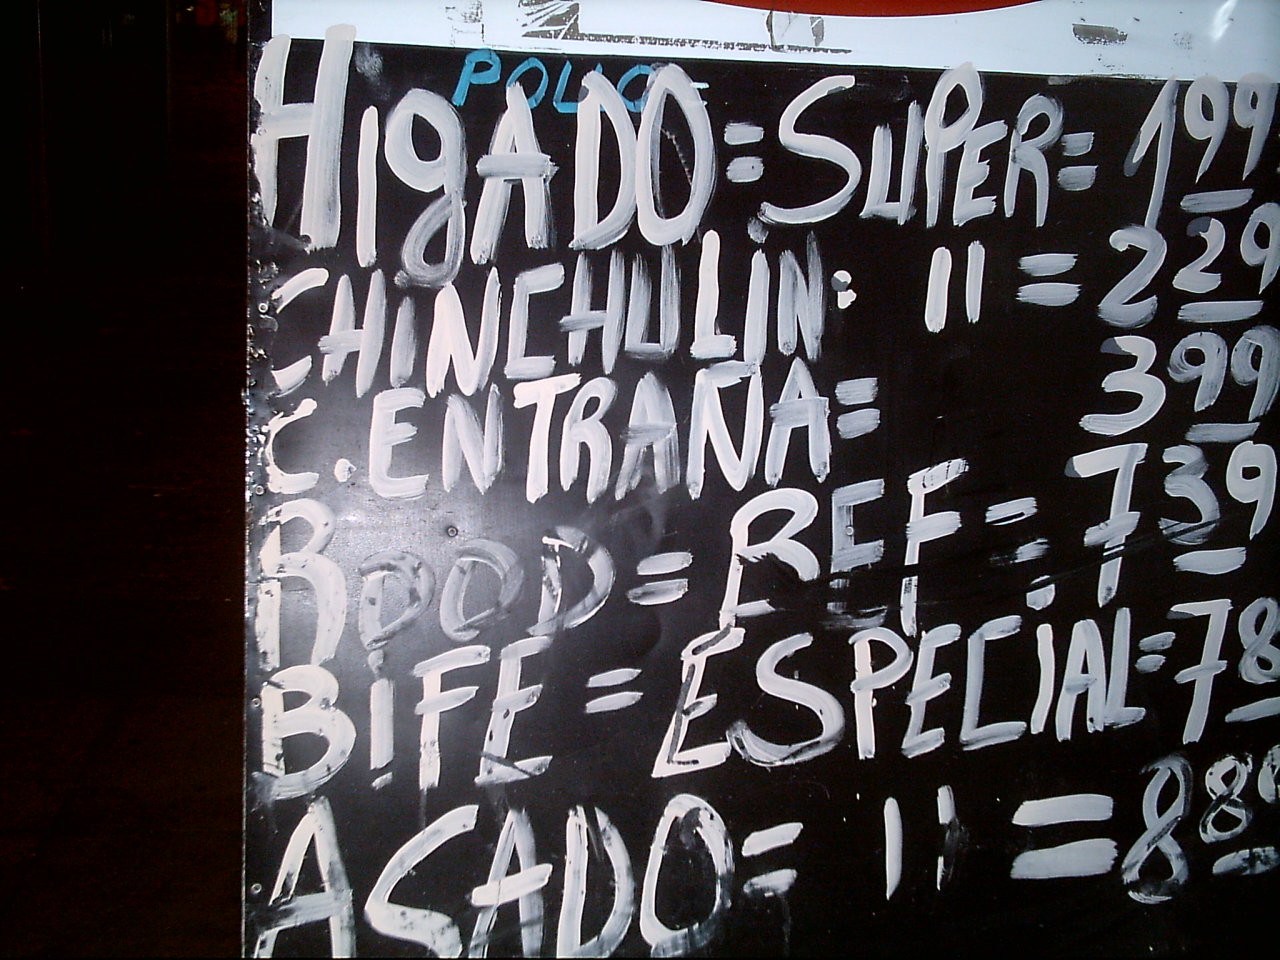 POLLO
HIgADO = SUPER = 1 99
CHINCHULIN: 11 = 2 29
C. ENTRAÑA = 3 99
ROOD = REF = 7 39
BIFE = ESPECIAL = 78
ASADO = 11 = 88